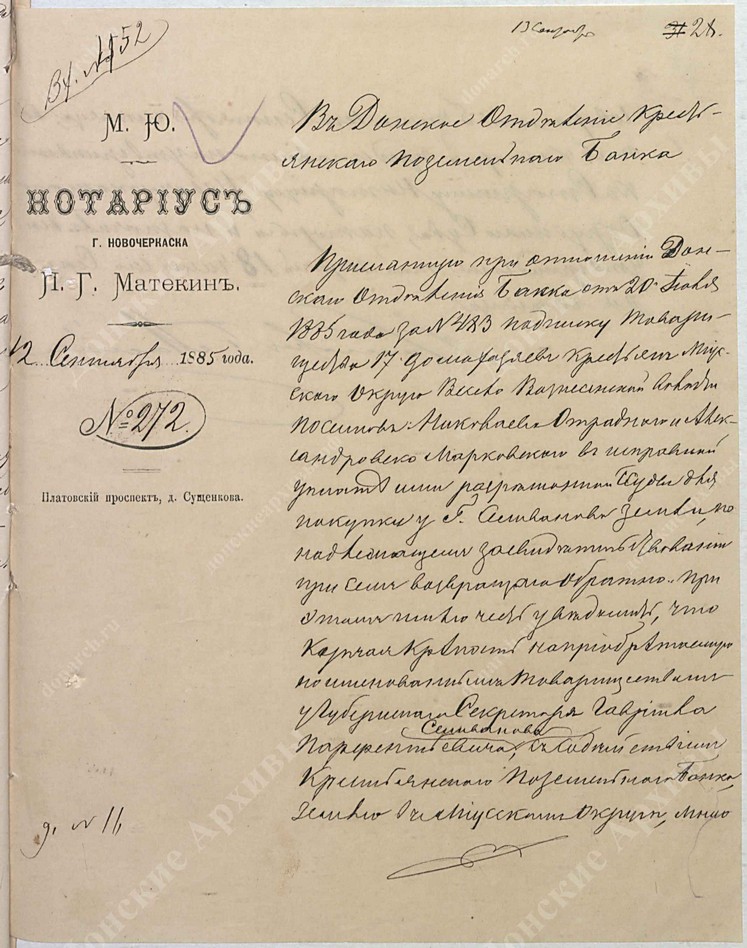 Вх. № 1552
13 Сентября
31 28.
М. Ю.
НОТАРІУСЪ
Г. НОВОЧЕРКАСКА
П. Г. Матекинъ.
12 Сентября 1885 года.
№ 272.
Платовскій проспект, д. Сущенкова.
д. № 11
Въ Донское Отдѣленіе Кресть-
янскаго Поземельнаго Банка
Присланную при отношеніи Дон-
скаго Отдѣленія Банка отъ 20 Іюля
1885 года за № 483 подписку Товари-
щества 17 домохозяевъ крестьянъ Міус-
скаго Округа Вознесенской волости
поселковъ: Николаево Отраднаго и Алек-
сандровско Марковскаго въ исправной
уплатѣ ими разрѣшенной ссуды для
покупки у Г. Селиванова земли, по
надлежащемъ засвидѣтельствованіи
при семъ возвращаю обратно. При
этомъ имѣю честь увѣдомить, что
купчая крѣпость на пріобрѣтаемую
поименованнымъ Товариществомъ
у Губернскаго Секретаря Гавріила
Селиванова
Парфентьевича, съ содѣйствіемъ
Крестьянскаго Поземельнаго Банка,
землю въ Міусскомъ Округѣ, мною